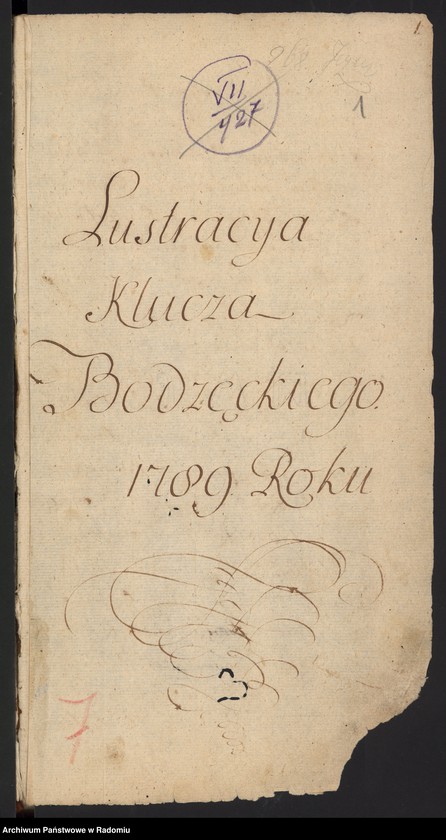 1
1
VII
427
Lustracya
Klucza
Bodzęckiego
1789 Roku
7
Archiwum Państwowe w Radomiu